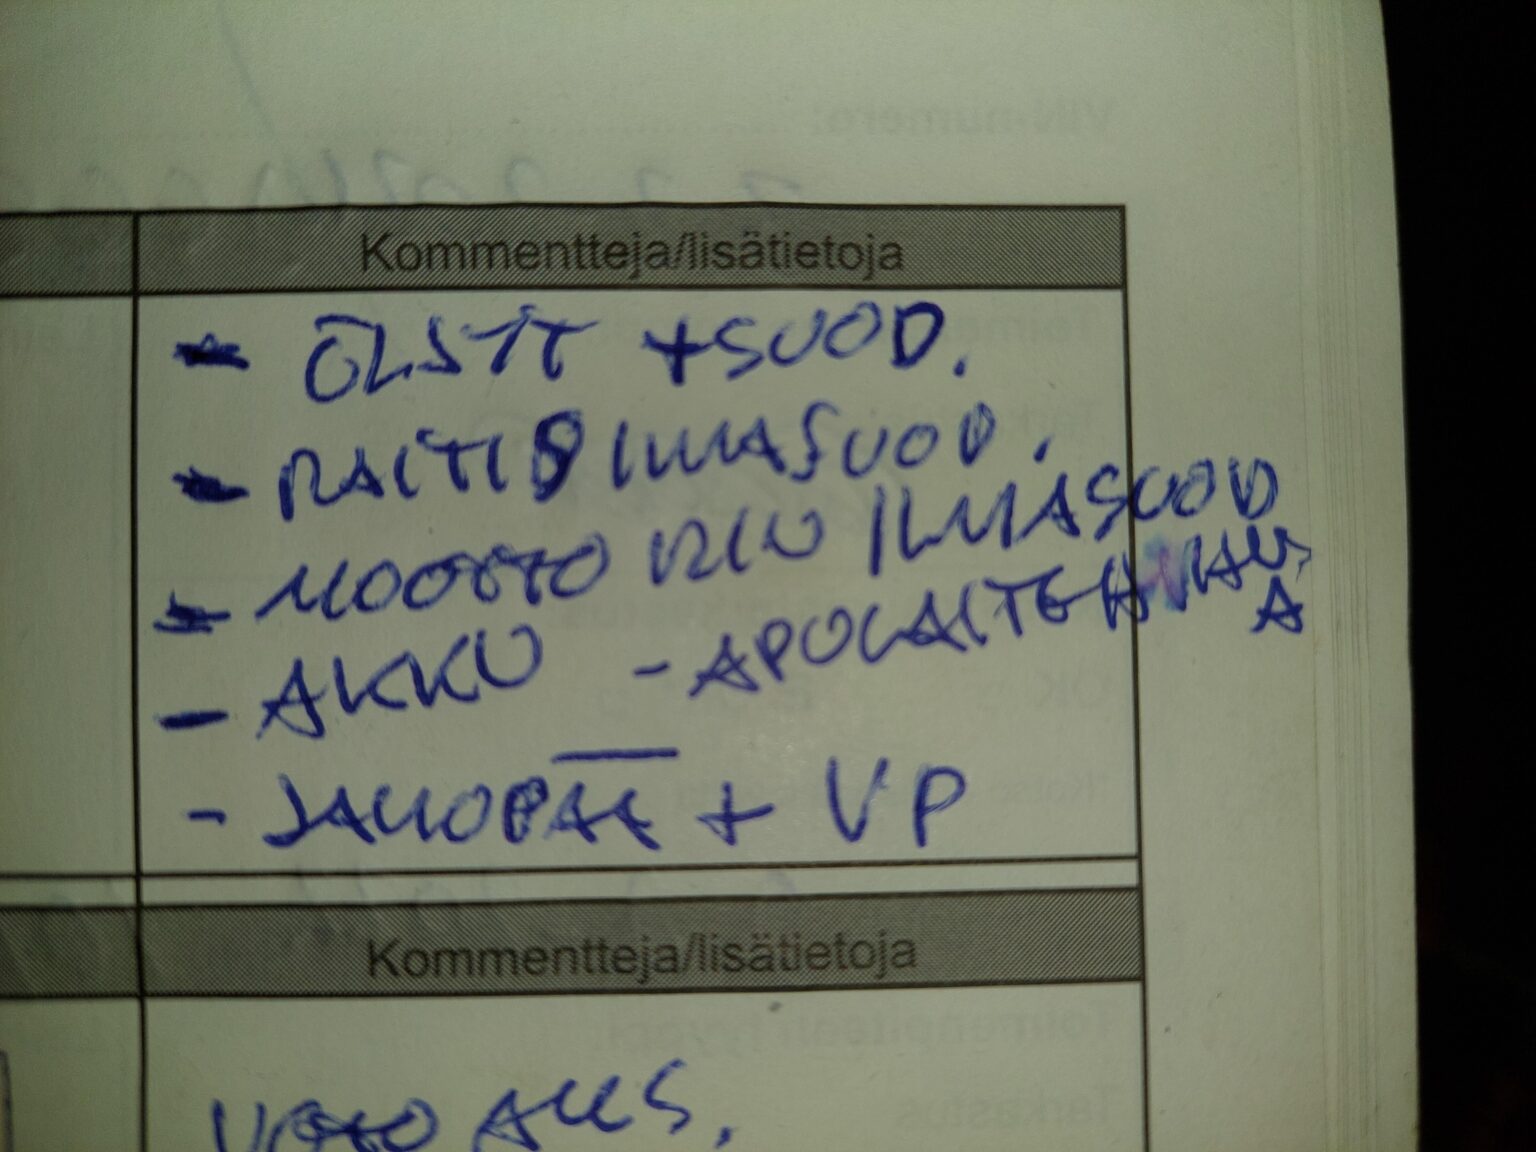 Kommentteja/lisätietoja
- ÖLJYT + SUOD.
- RAITIS ILMASUOD.
- MOOTTORIN ILMASUOD
- AKKU - APULAITEHIHNA
- JAKOPÄÄ + VP
Kommentteja/lisätietoja